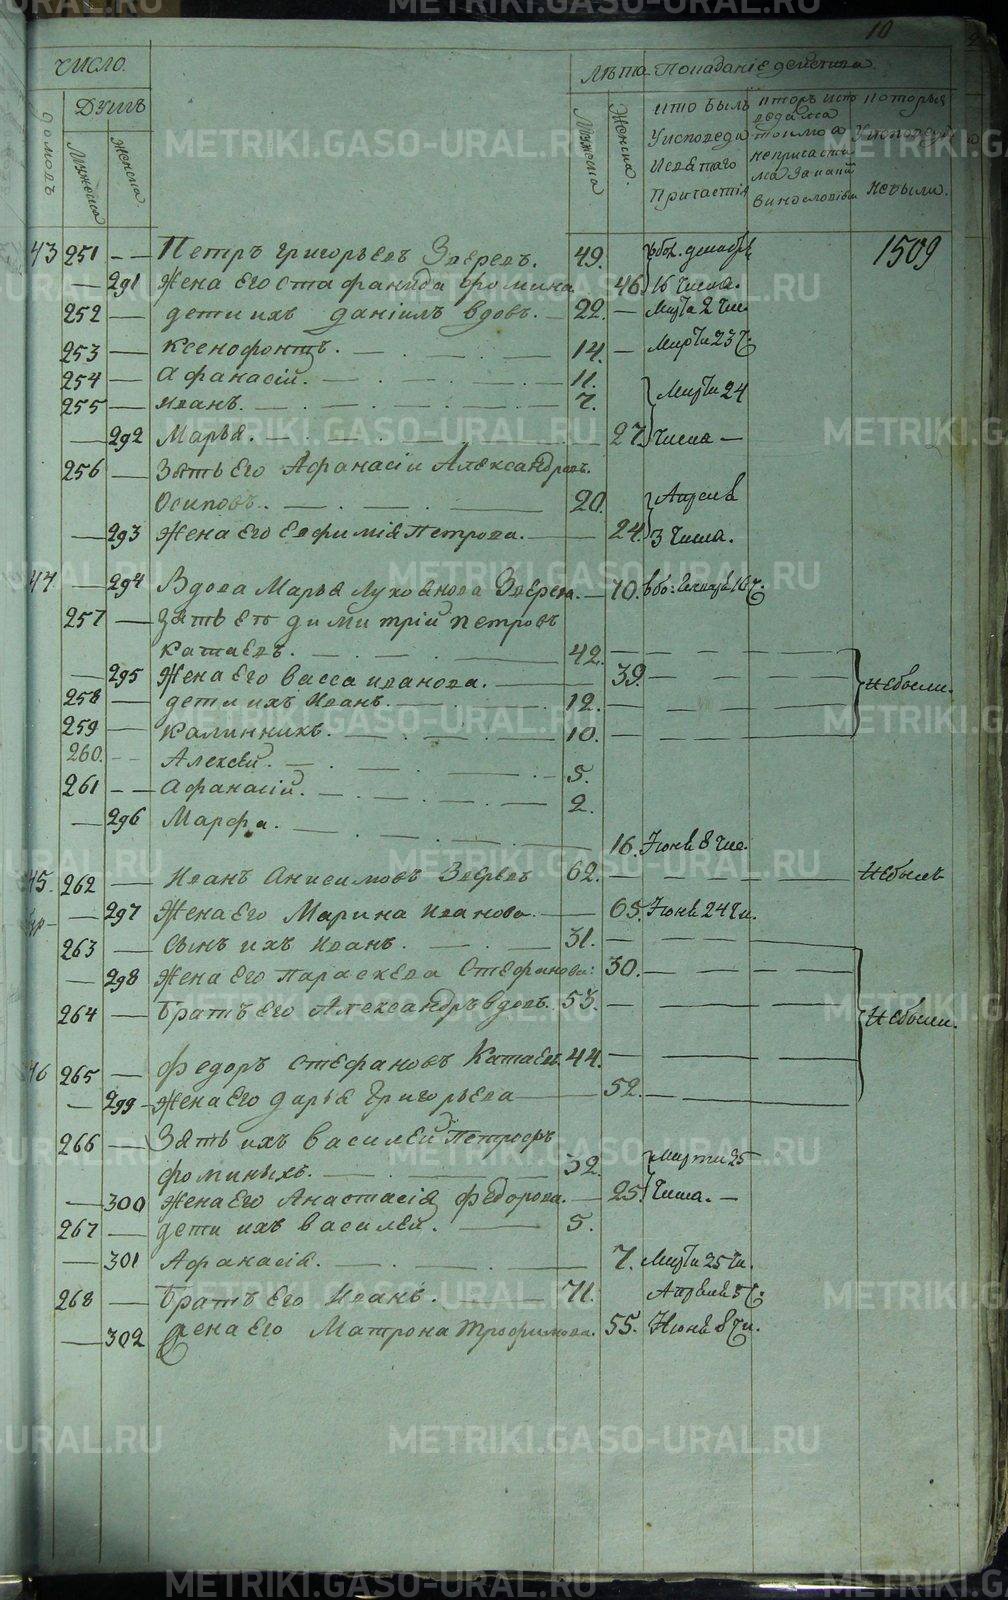 10
ЧИСЛО. Лѣта Показаніе действа
домовъ Душъ
Мужеска Женска. Мужеска Женска.
кто былъ Уисповеди Исвятаго Причастія
которыя Уисповеди Небыли.
1509
43 251 Петръ Григорьевъ Зверевъ. 49. вбы. декабря
291 Жена Его Стафанида Фомина 46. 16 числа.
252 дети ихъ даніилъ вдовъ. 22. Марта 2 чис.
253 Ксенофонтъ. 14. Марта 23 ч.
254 Афанасій. 11.
255 Иванъ. 7. Марта 24
292 Марья. 27. Числа
256 Зять Его Афанасіи Александровъ
Осиповъ. 20. Апреля
293 Жена Его Евфимія Петрова. 24. 3 Числа.
44 294 Вдова Марья Лукоянова Зверева. 70. вбы: генваря 16 ч.
257 Зять Ея димитрій Петровъ
Катаевъ. 42.
295 Жена Его Васса Иванова. 39. Небыли.
258 дети ихъ Иванъ. 12.
259 Калинникъ. 10.
260. Алексѣй. 5.
261 Афанасій. 2.
296 Марфа. 16. Июня 8 чис.
45. 262 Иванъ Анисимовъ Зверевъ 62. Небылъ
297 Жена Его Марина Иванова. 65. Июня 24 чи.
263 Сынъ ихъ Иванъ. 31.
298 Жена Его Параскева Стефанова: 30.
264 Братъ Его Александръ вдовъ. 53. Небыли.
46 265 Федоръ Стефановъ Катаевъ. 44.
299 Жена Его Дарья Григорьева 52.
266 Зять ихъ Василей Петровъ
Фоминыхъ. 32. Марта 25
300 Жена Его Анастасія Федорова. 25. Числа.
267 дети ихъ Василей. 5.
301 Афанасія. 7. Марта 25 чи.
268 Братъ Его Иванъ. 71. Апреля 5 ч.
302 Жена Его Матрона Трофимова. 55. Июня 8 чи.
METRIKI.GASO-URAL.RU